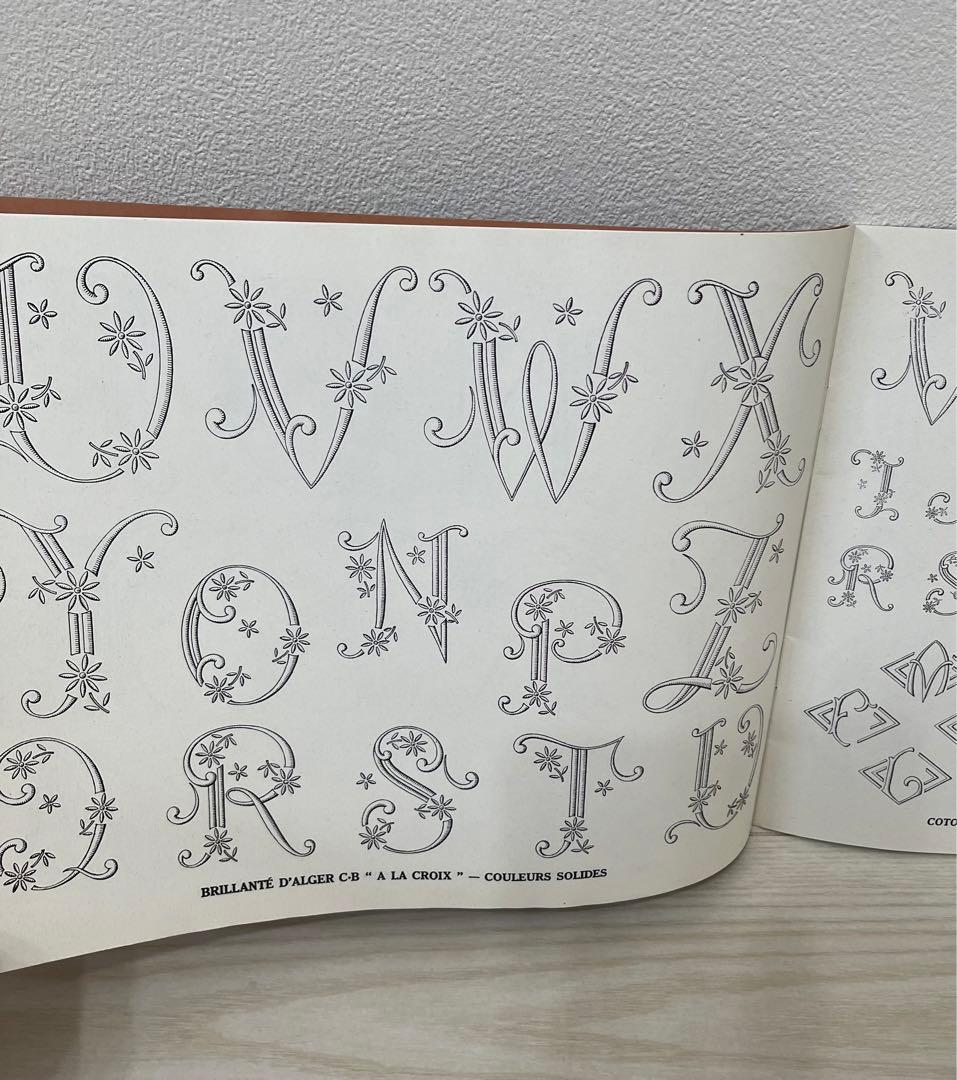 U V W X
Y O N P Z
Q R S T U
BRILLANTÉ D'ALGER C·B “ A LA CROIX ” — COULEURS SOLIDES
I
R S
M
E
G
COTO